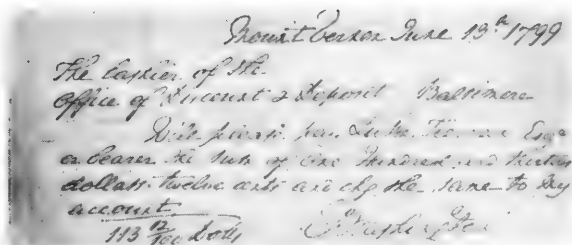 Mount Vernon June 13th 1799
The Cashier of the
Office of Discount & Deposit Baltimore
Will please pay Luke Tiernan Esqr
or bearer the sum of One Hundred and thirteen
dollars twelve cents and chg the same to my
account.
113 12/100 Dolls GWashington